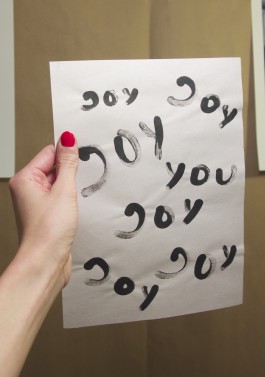 JOY JOY
JOY
YOU
JOY
JOY JOY